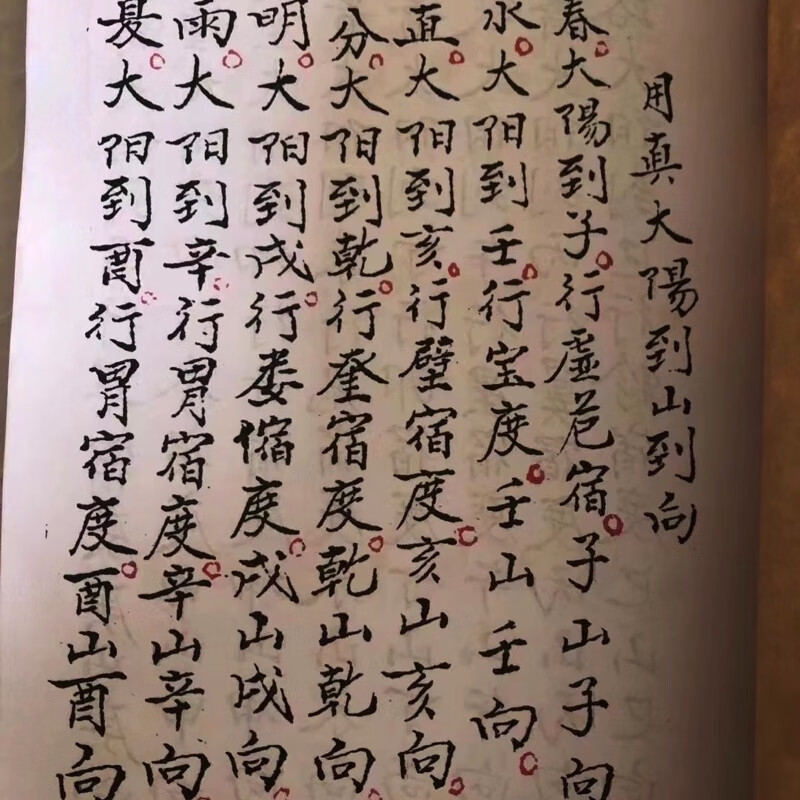 用真大陽到山到向
春大陽到子行虛危宿子山子向
水大阳到壬行宝度壬山壬向
直大阳到亥行壁宿度亥山亥向
分大阳到乾行奎宿度乾山乾向
明大阳到戌行娄宿度戌山戌向
雨大阳到辛行胃宿度辛山辛向
夏大阳到酉行胃宿度酉山酉向